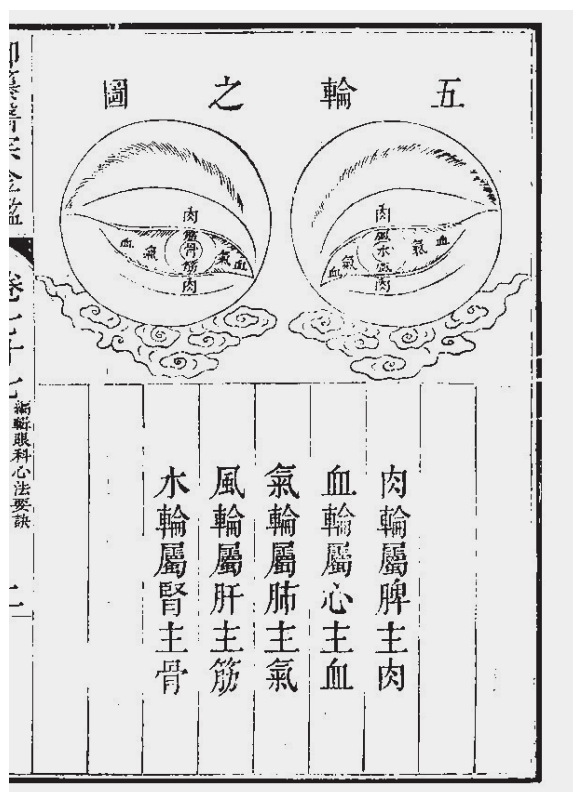 五輪之圖
肉
風
血氣水氣血
風
肉
肉
筋
血氣骨氣血
筋
肉
肉輪屬脾主肉
血輪屬心主血
氣輪屬肺主氣
風輪屬肝主筋
水輪屬腎主骨
御纂醫宗金鑑
卷七十七
編輯眼科心法要訣